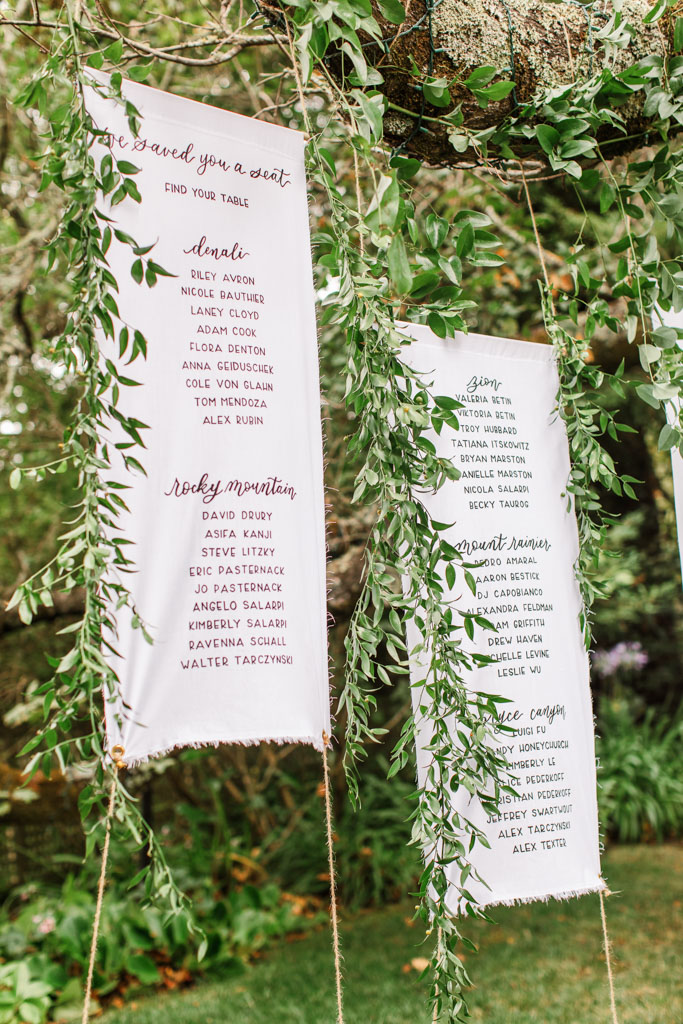 saved you a seat
FIND YOUR TABLE
denali
RILEY AVRON
NICOLE BAUTHIER
LANEY CLOYD
ADAM COOK
FLORA DENTON
ANNA GEIDUSCHEK
COLE VON GLAHN
TOM MENDOZA
ALEX RUBIN
rocky mountain
DAVID DRURY
ASIFA KANJI
STEVE LITZKY
ERIC PASTERNACK
JO PASTERNACK
ANGELO SALARPI
KIMBERLY SALARPI
RAVENNA SCHALL
WALTER TARCZYNSKI
zion
VALERIA BETIN
VIKTORIA BETIN
TROY HUBBARD
TATIANA ITSKOWITZ
BRYAN MARSTON
DANIELLE MARSTON
NICOLA SALARPI
BECKY TAUROG
mount rainier
PEDRO AMARAL
AARON BESTICK
DJ CAPOBIANCO
ALEXANDRA FELDMAN
ADAM GRIFFITH
DREW HAVEN
MICHELLE LEVINE
LESLIE WU
bryce canyon
LUIGI FU
HONEYCHURCH
KIMBERLY LE
PEDERKOFF
CHRISTIAN PEDERKOFF
JEFFREY SWARTWOUT
ALEX TARCZYNSKI
ALEX TEXTER